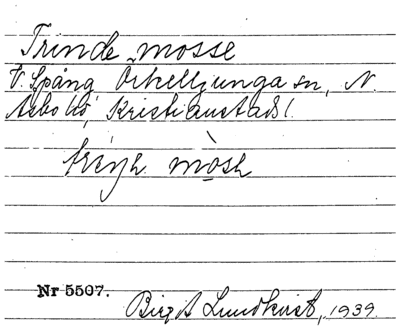 Trinde mosse
V. Spång, Örkelljunga sn, N.
Åsbo hd, Kristianstads l.
mòsh
Nr 5507.
Birgit Lundkvist, 1939.